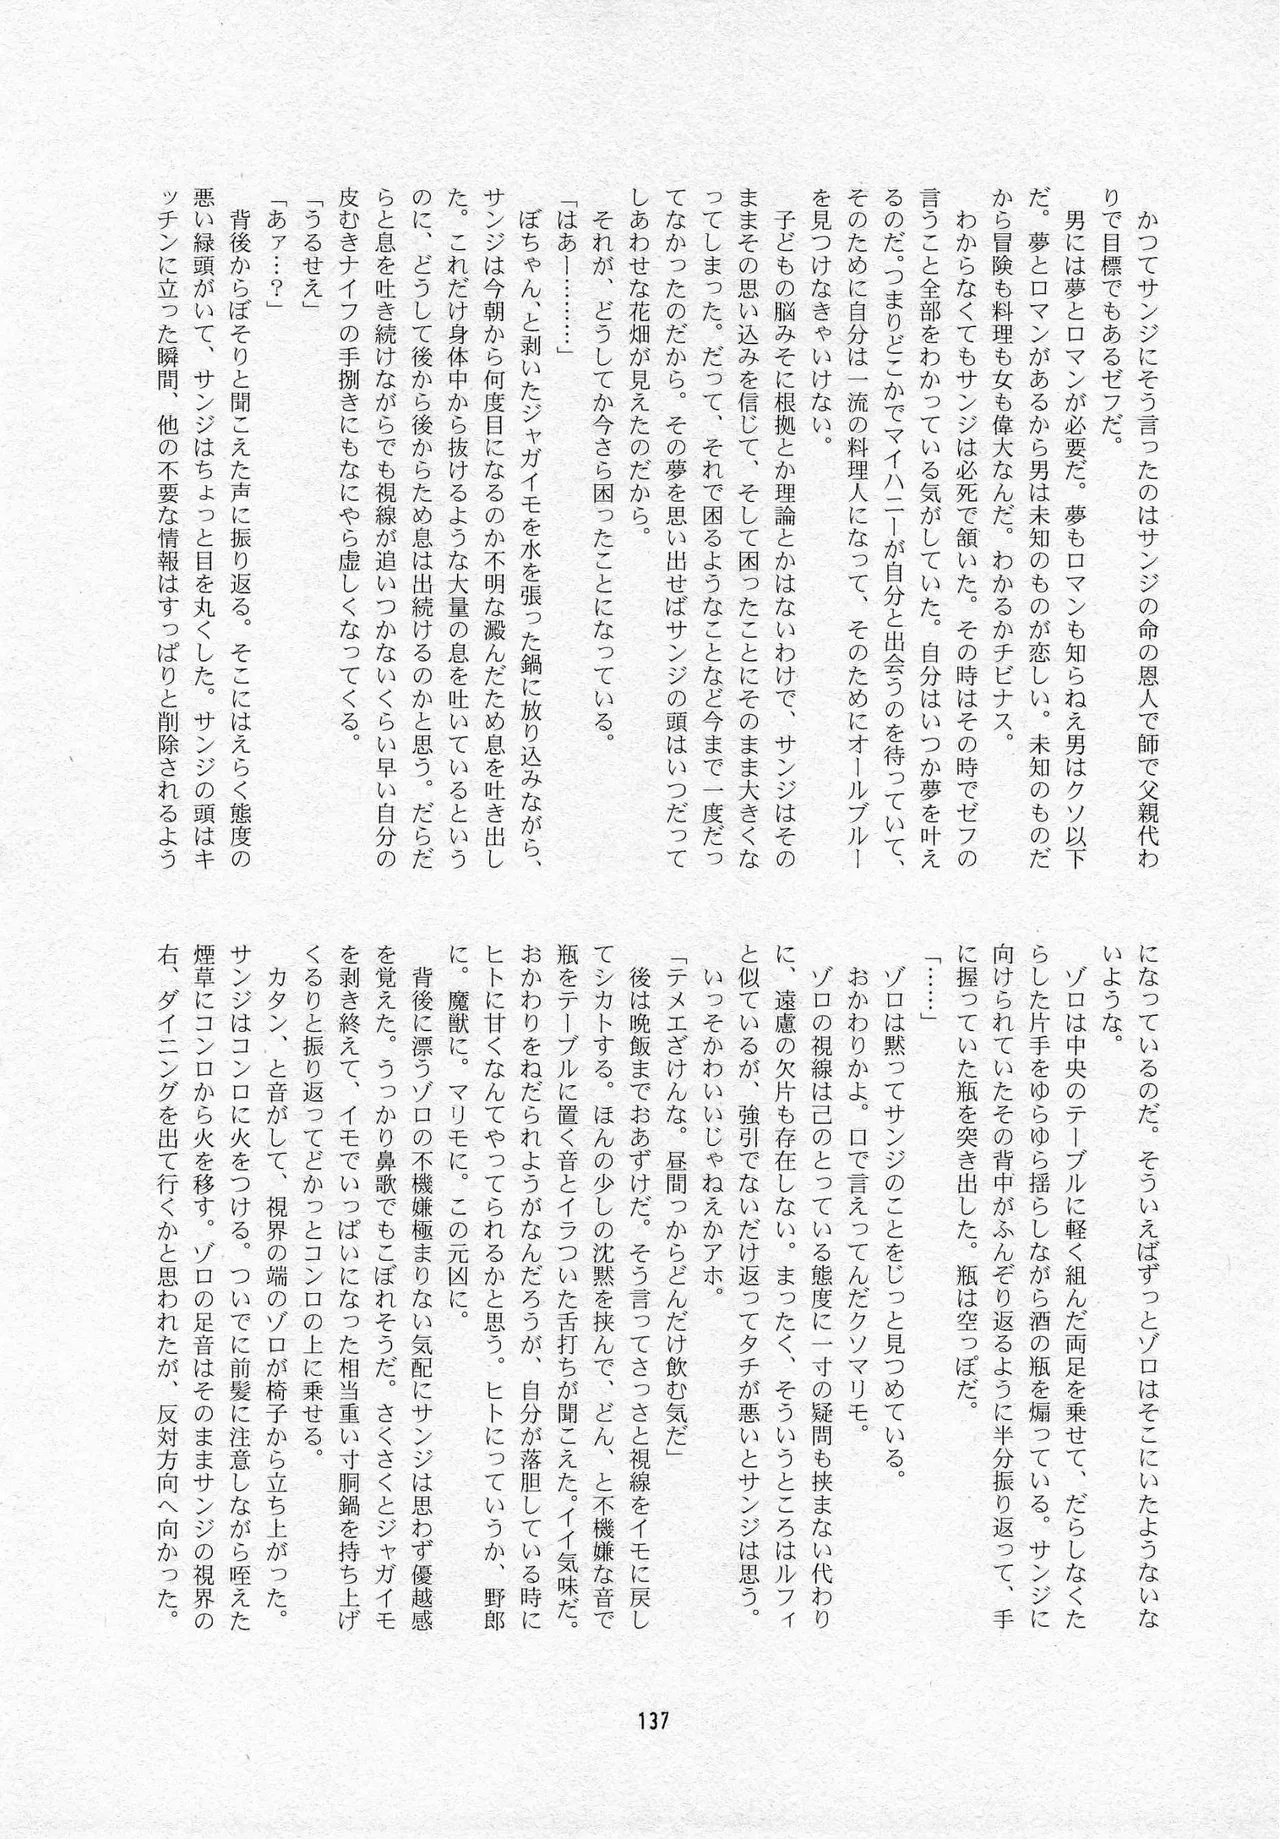 かつてサンジにそう言ったのはサンジの命の恩人で師で父親代わ
りで目標でもあるゼフだ。
　男には夢とロマンが必要だ。夢もロマンも知らねえ男はクソ以下
だ。夢とロマンがあるから男は未知のものが恋しい。未知のものだ
から冒険も料理も女も偉大なんだ。わかるかチビナス。
　わからなくてもサンジは必死で頷いた。その時はその時でゼフの
言うこと全部をわかっている気がしていた。自分はいつか夢を叶え
るのだ。つまりどこかでマイハニーが自分と出会うのを待っていて、
そのために自分は一流の料理人になって、そのためにオールブルー
を見つけなきゃいけない。
　子どもの脳みそに根拠とか理論とかはないわけで、サンジはその
ままその思い込みを信じて、そして困ったことにそのまま大きくな
ってしまった。だって、それで困るようなことなど今まで一度だっ
てなかったのだから。その夢を思い出せばサンジの頭はいつだって
しあわせな花畑が見えたのだから。
　それが、どうしてか今さら困ったことになっている。
「はあー………」
　ぼちゃん、と剥いたジャガイモを水を張った鍋に放り込みながら、
サンジは今朝から何度目になるのか不明な澱んだため息を吐き出し
た。これだけ身体中から抜けるような大量の息を吐いているという
のに、どうして後から後からため息は出続けるのかと思う。だらだ
らと息を吐き続けながらでも視線が追いつかないくらい早い自分の
皮むきナイフの手捌きにもなにやら虚しくなってくる。
「うるせえ」
「あァ…？」
　背後からぼそりと聞こえた声に振り返る。そこにはえらく態度の
悪い緑頭がいて、サンジはちょっと目を丸くした。サンジの頭はキ
ッチンに立った瞬間、他の不要な情報はすっぱりと削除されるよう
になっているのだ。そういえばずっとゾロはそこにいたようないな
いような。
　ゾロは中央のテーブルに軽く組んだ両足を乗せて、だらしなくた
らした片手をゆらゆら揺らしながら酒の瓶を煽っている。サンジに
向けられていたその背中がふんぞり返るように半分振り返って、手
に握っていた瓶を突き出した。瓶は空っぽだ。
「……」
　ゾロは黙ってサンジのことをじっと見つめている。
　おかわりかよ。口で言えってんだクソマリモ。
　ゾロの視線は己のとっている態度に一寸の疑問も挟まない代わり
に、遠慮の欠片も存在しない。まったく、そういうところはルフィ
と似ているが、強引でないだけ返ってタチが悪いとサンジは思う。
　いっそかわいいじゃねえかアホ。
「テメエざけんな。昼間っからどんだけ飲む気だ」
　後は晩飯までおあずけだ。そう言ってさっさと視線をイモに戻し
てシカトする。ほんの少しの沈黙を挟んで、どん、と不機嫌な音で
瓶をテーブルに置く音とイラついた舌打ちが聞こえた。イイ気味だ。
おかわりをねだられようがなんだろうが、自分が落胆している時に
ヒトに甘くなんてやってられるかと思う。ヒトにっていうか、野郎
に。魔獣に。マリモに。この元凶に。
　背後に漂うゾロの不機嫌極まりない気配にサンジは思わず優越感
を覚えた。うっかり鼻歌でもこぼれそうだ。さくさくとジャガイモ
を剥き終えて、イモでいっぱいになった相当重い寸胴鍋を持ち上げ
くるりと振り返ってどかっとコンロの上に乗せる。
　カタン、と音がして、視界の端のゾロが椅子から立ち上がった。
サンジはコンロに火をつける。ついでに前髪に注意しながら咥えた
煙草にコンロから火を移す。ゾロの足音はそのままサンジの視界の
右、ダイニングを出て行くかと思われたが、反対方向へ向かった。
137